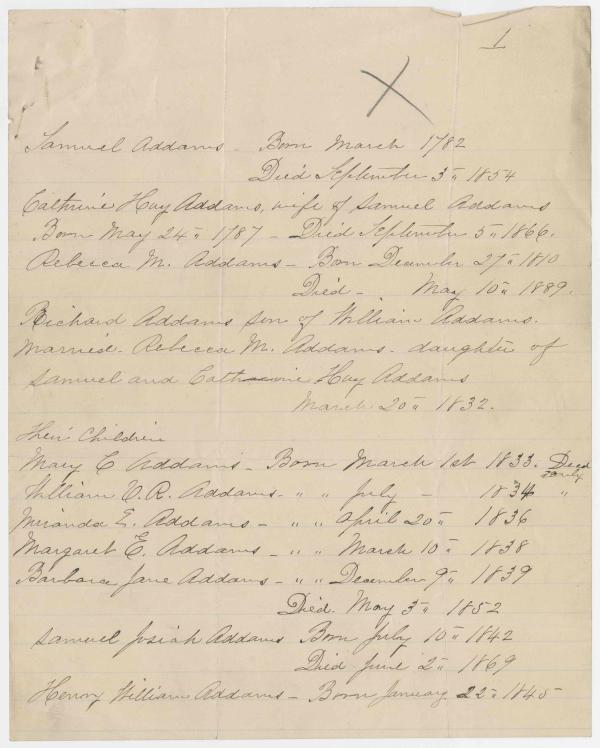 1
Samuel Addams - Born March 1782
Died September 3" 1854
Cathrine Hoy Addams, wife of Samuel Addams
Born May 24" 1787 - Died September 5" 1866.
Rebecca M. Addams - Born December 27" 1810
Died - May 10" 1889.
Richard Addams son of William Addams.
Married - Rebecca M. Addams - daughter of
Samuel and Cathrine Hoy Addams
March 20" 1832.
Their Children
Mary C Addams - Born March 1st 1833. Died
early
William R. Addams - " " July - 1834 "
Miranda E. Addams - " " April 20" 1836
Margaret E. Addams - " " March 10" 1838
Barbara Jane Addams - " " December 9" 1839
Died. May 3" 1852
Samuel Josiah Addams Born July 10" 1842
Died June 2" 1869
Henry William Addams - Born January 22" 1845